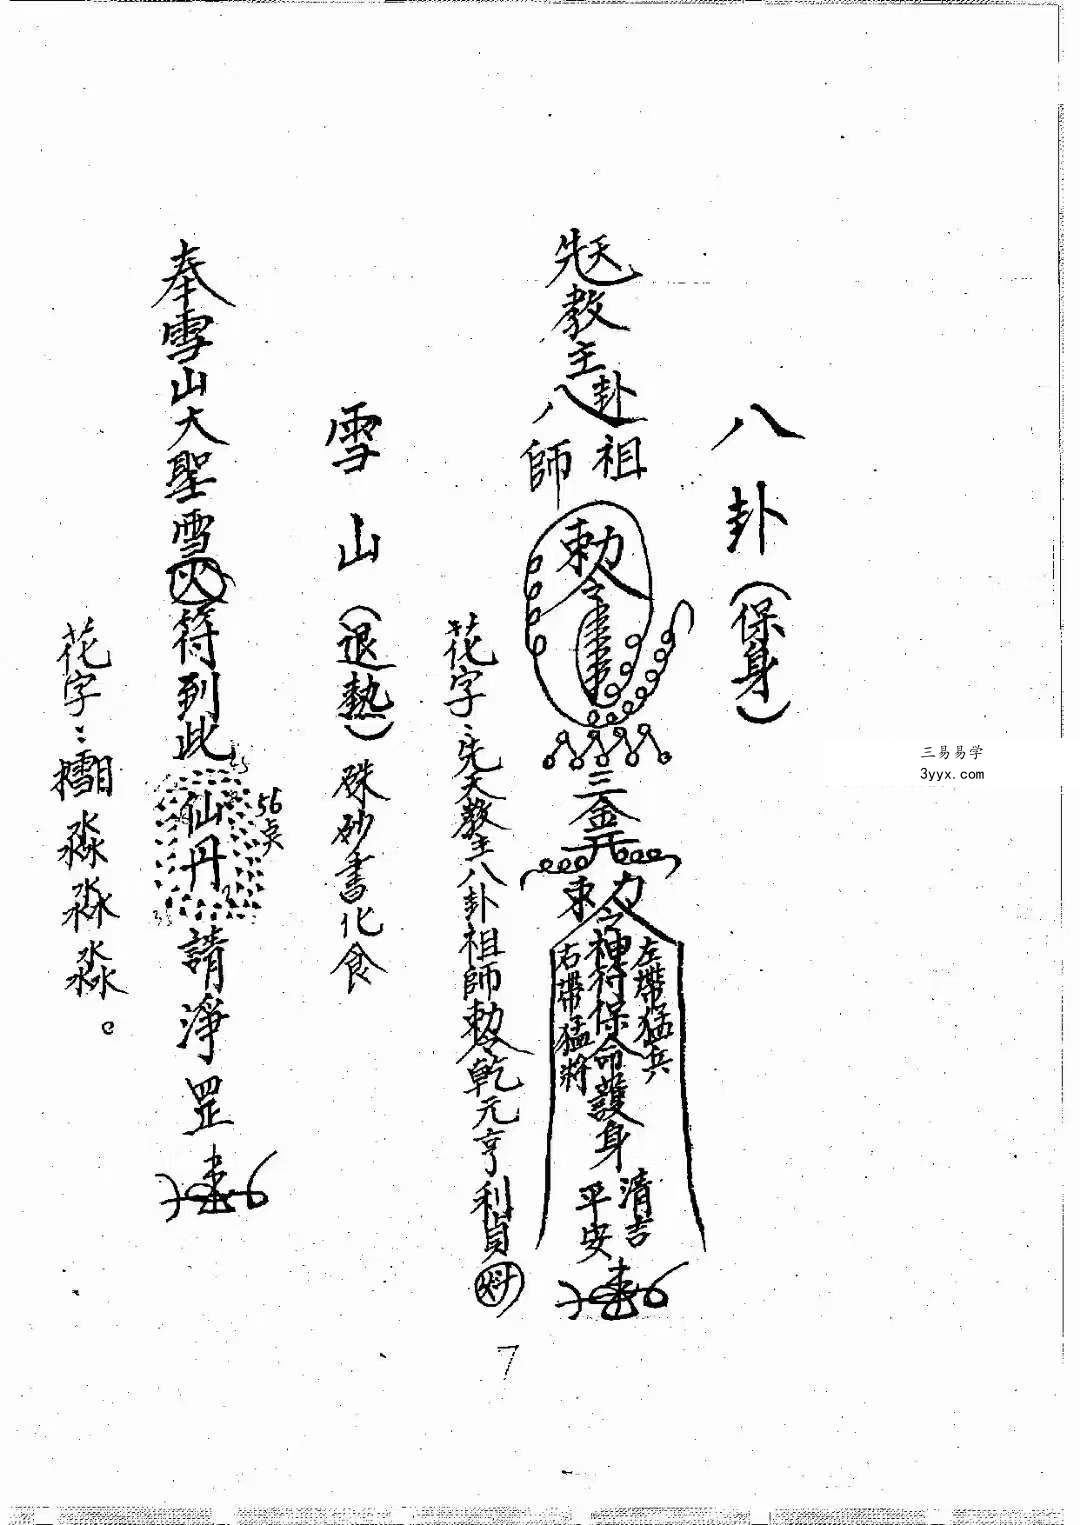 八卦（保身）
先天教主八卦祖師
勅令
三金
勅令神符保命護身
左帶猛兵
右帶猛將
清吉
平安
花字：先天教主八卦祖師勅令乾元亨利貞
雪山（退熱）硃砂書化食
奉雪山大聖雪火符到此仙丹請淨罡
56点
花字：淼淼淼。
7
三易易学
3yyx.com